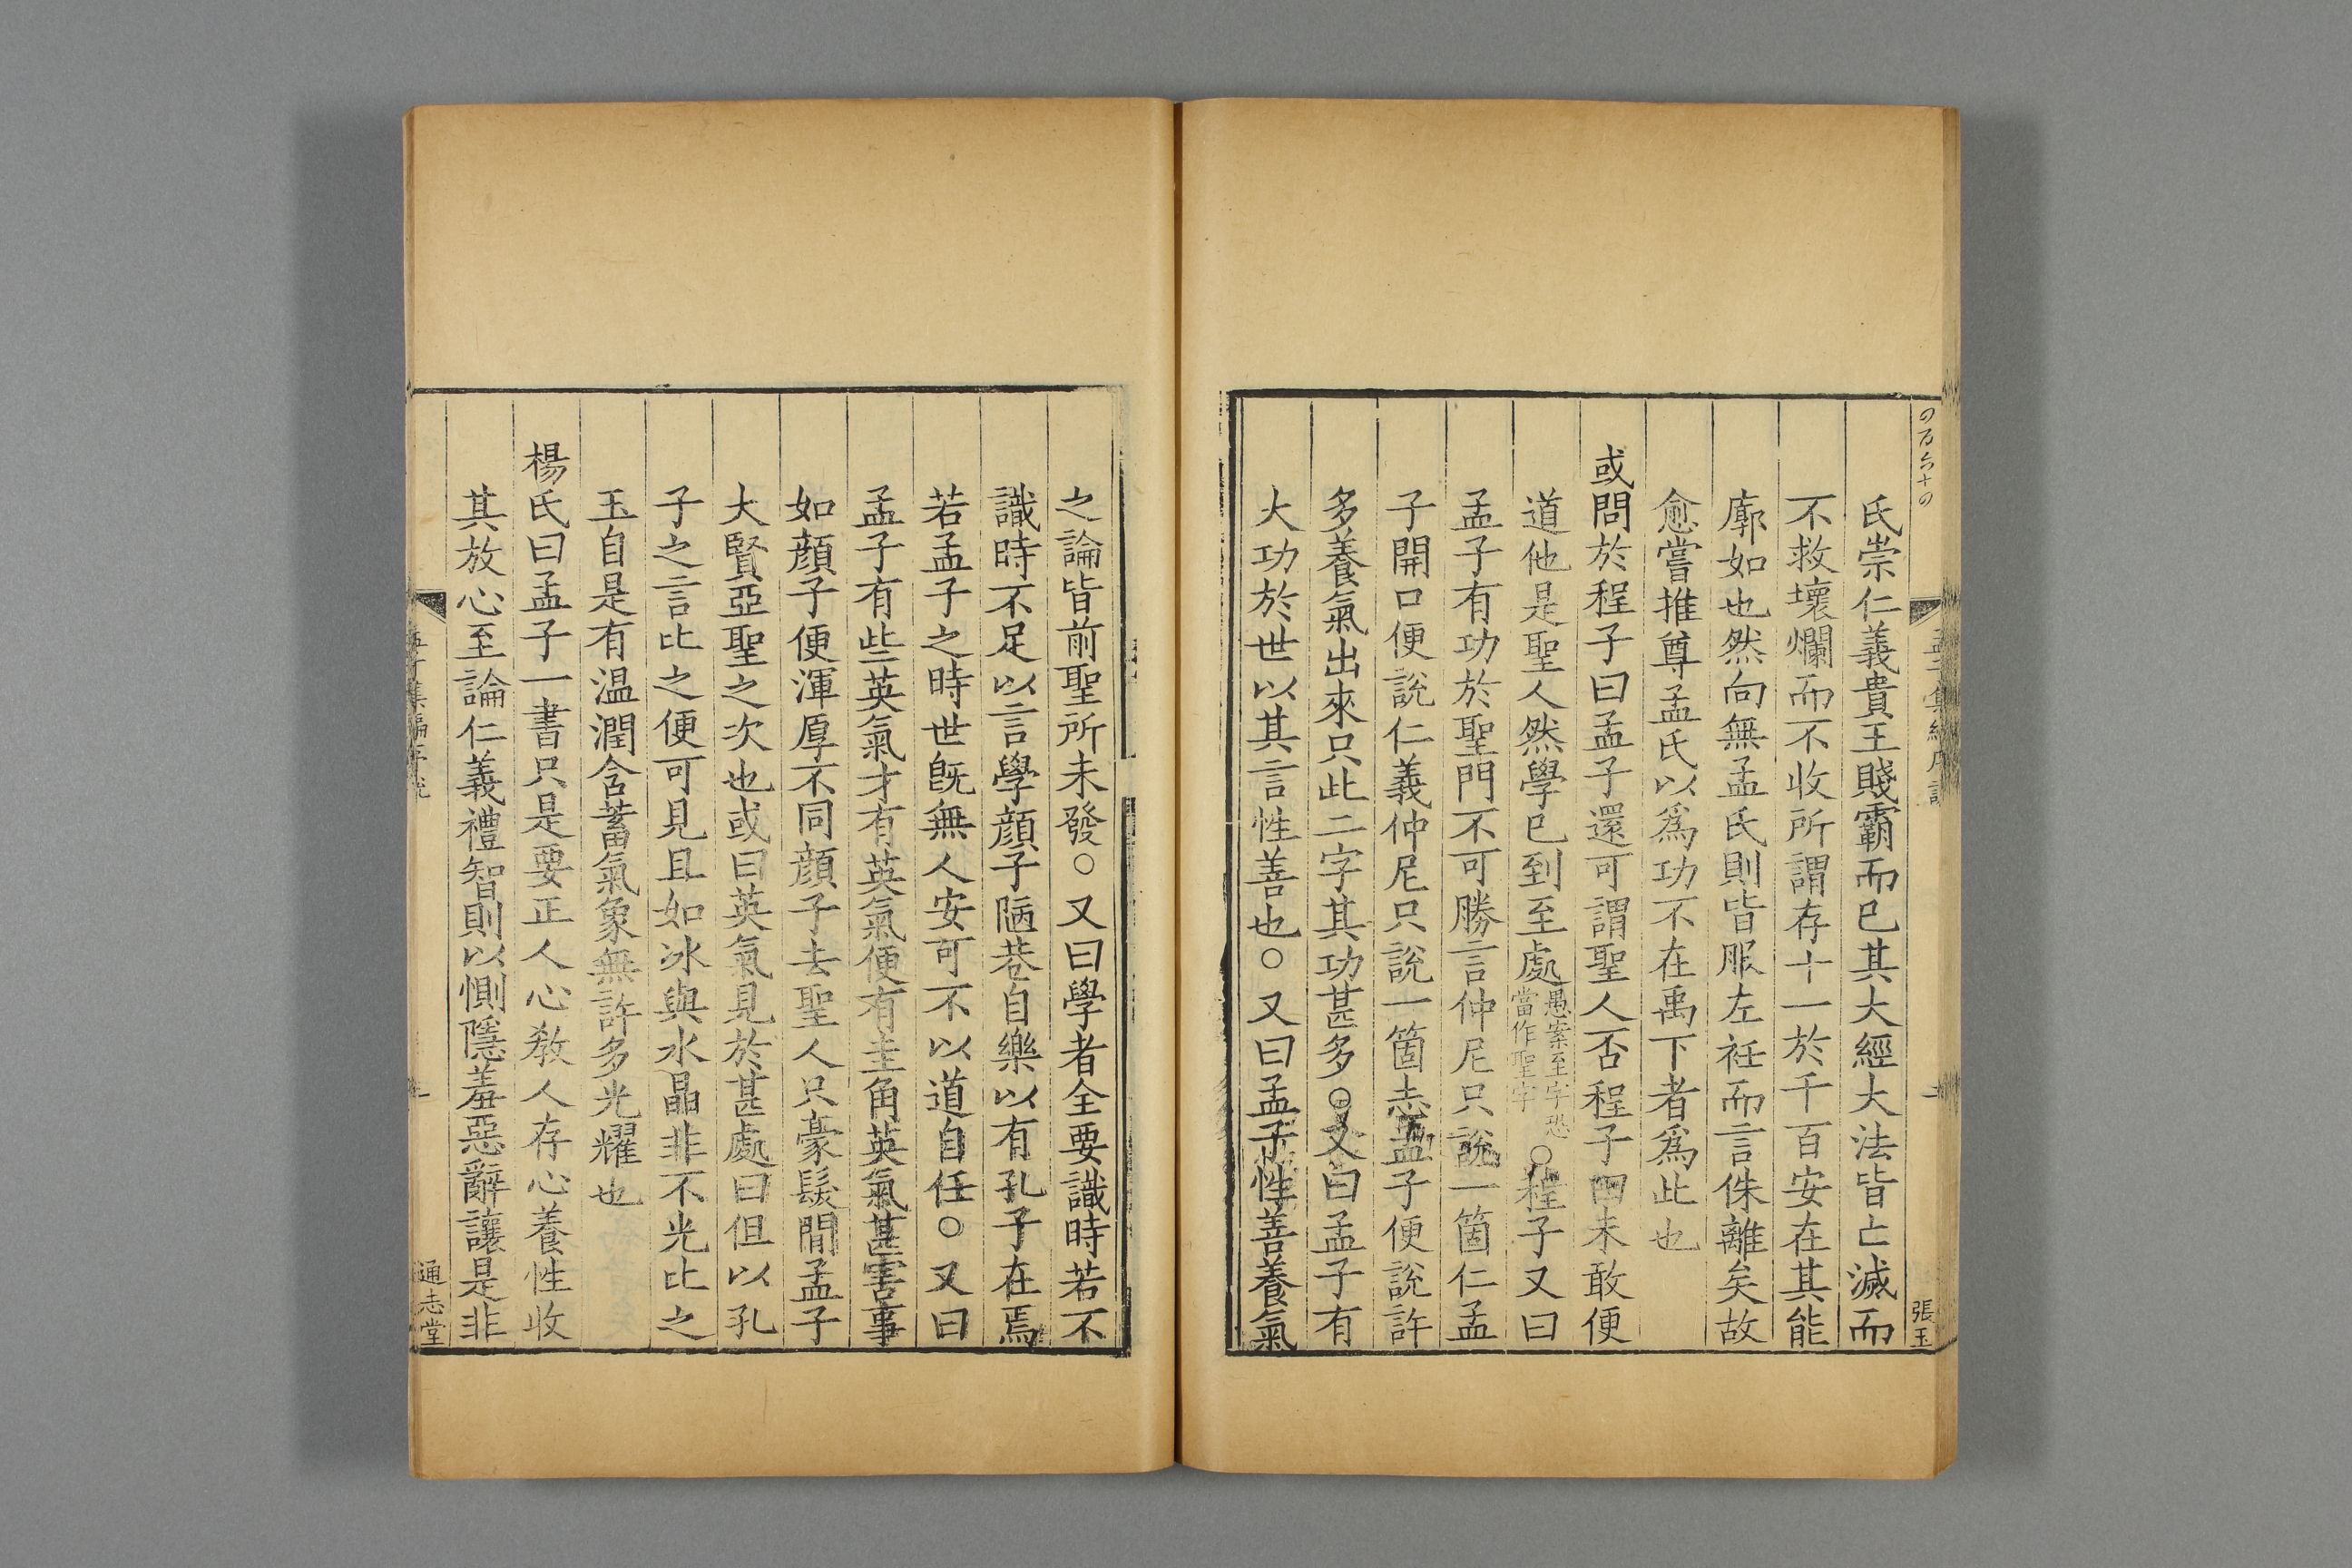 氏崇仁義貴王賤霸而已其大經大法皆亡滅而
不救壞爛而不收所謂存十一於千百安在其能
廓如也然向無孟氏則皆服左衽而言侏離矣故
愈嘗推尊孟氏以為功不在禹下者為此也
或問於程子曰孟子還可謂聖人否程子曰未敢便
道他是聖人然學已到至處愚案至字恐當作聖字○程子又曰
孟子有功於聖門不可勝言仲尼只說一箇仁孟
子開口便說仁義仲尼只說一箇志孟子便說許
多養氣出來只此二字其功甚多○又曰孟子有
大功於世以其言性善也○又曰孟子性善養氣
張玉
之論皆前聖所未發○又曰學者全要識時若不
識時不足以言學顏子陋巷自樂以有孔子在焉
若孟子之時世旣無人安可不以道自任○又曰
孟子有些英氣才有英氣便有圭角英氣甚害事
如顏子便渾厚不同顏子去聖人只豪髮閒孟子
大賢亞聖之次也或曰英氣見於甚處曰但以孔
子之言比之便可見且如冰與水晶非不光比之
玉自是有温潤含蓄氣象無許多光耀也
楊氏曰孟子一書只是要正人心敎人存心養性收
其放心至論仁義禮智則以惻隱羞惡辭讓是非
通志堂